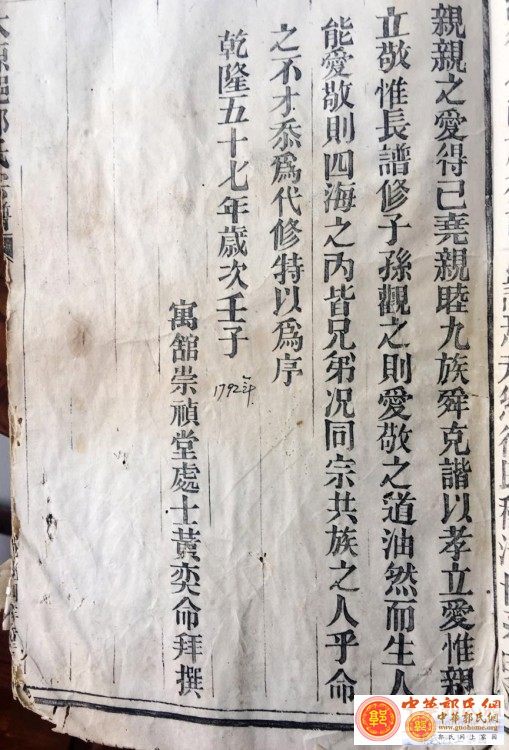 親親之愛得已堯親睦九族舜克諧以孝立愛惟親
立敬惟長譜修子孫觀之則愛敬之道油然而生人
能愛敬則四海之內皆兄弟況同宗共族之人乎命
之不才忝爲代修特以爲序
乾隆五十七年歲次壬子
1792年
寓舘崇禎堂處士黃奕命拜撰
中华郭氏網
中華郭氏網
www.guohome.org
郭氏网上家园